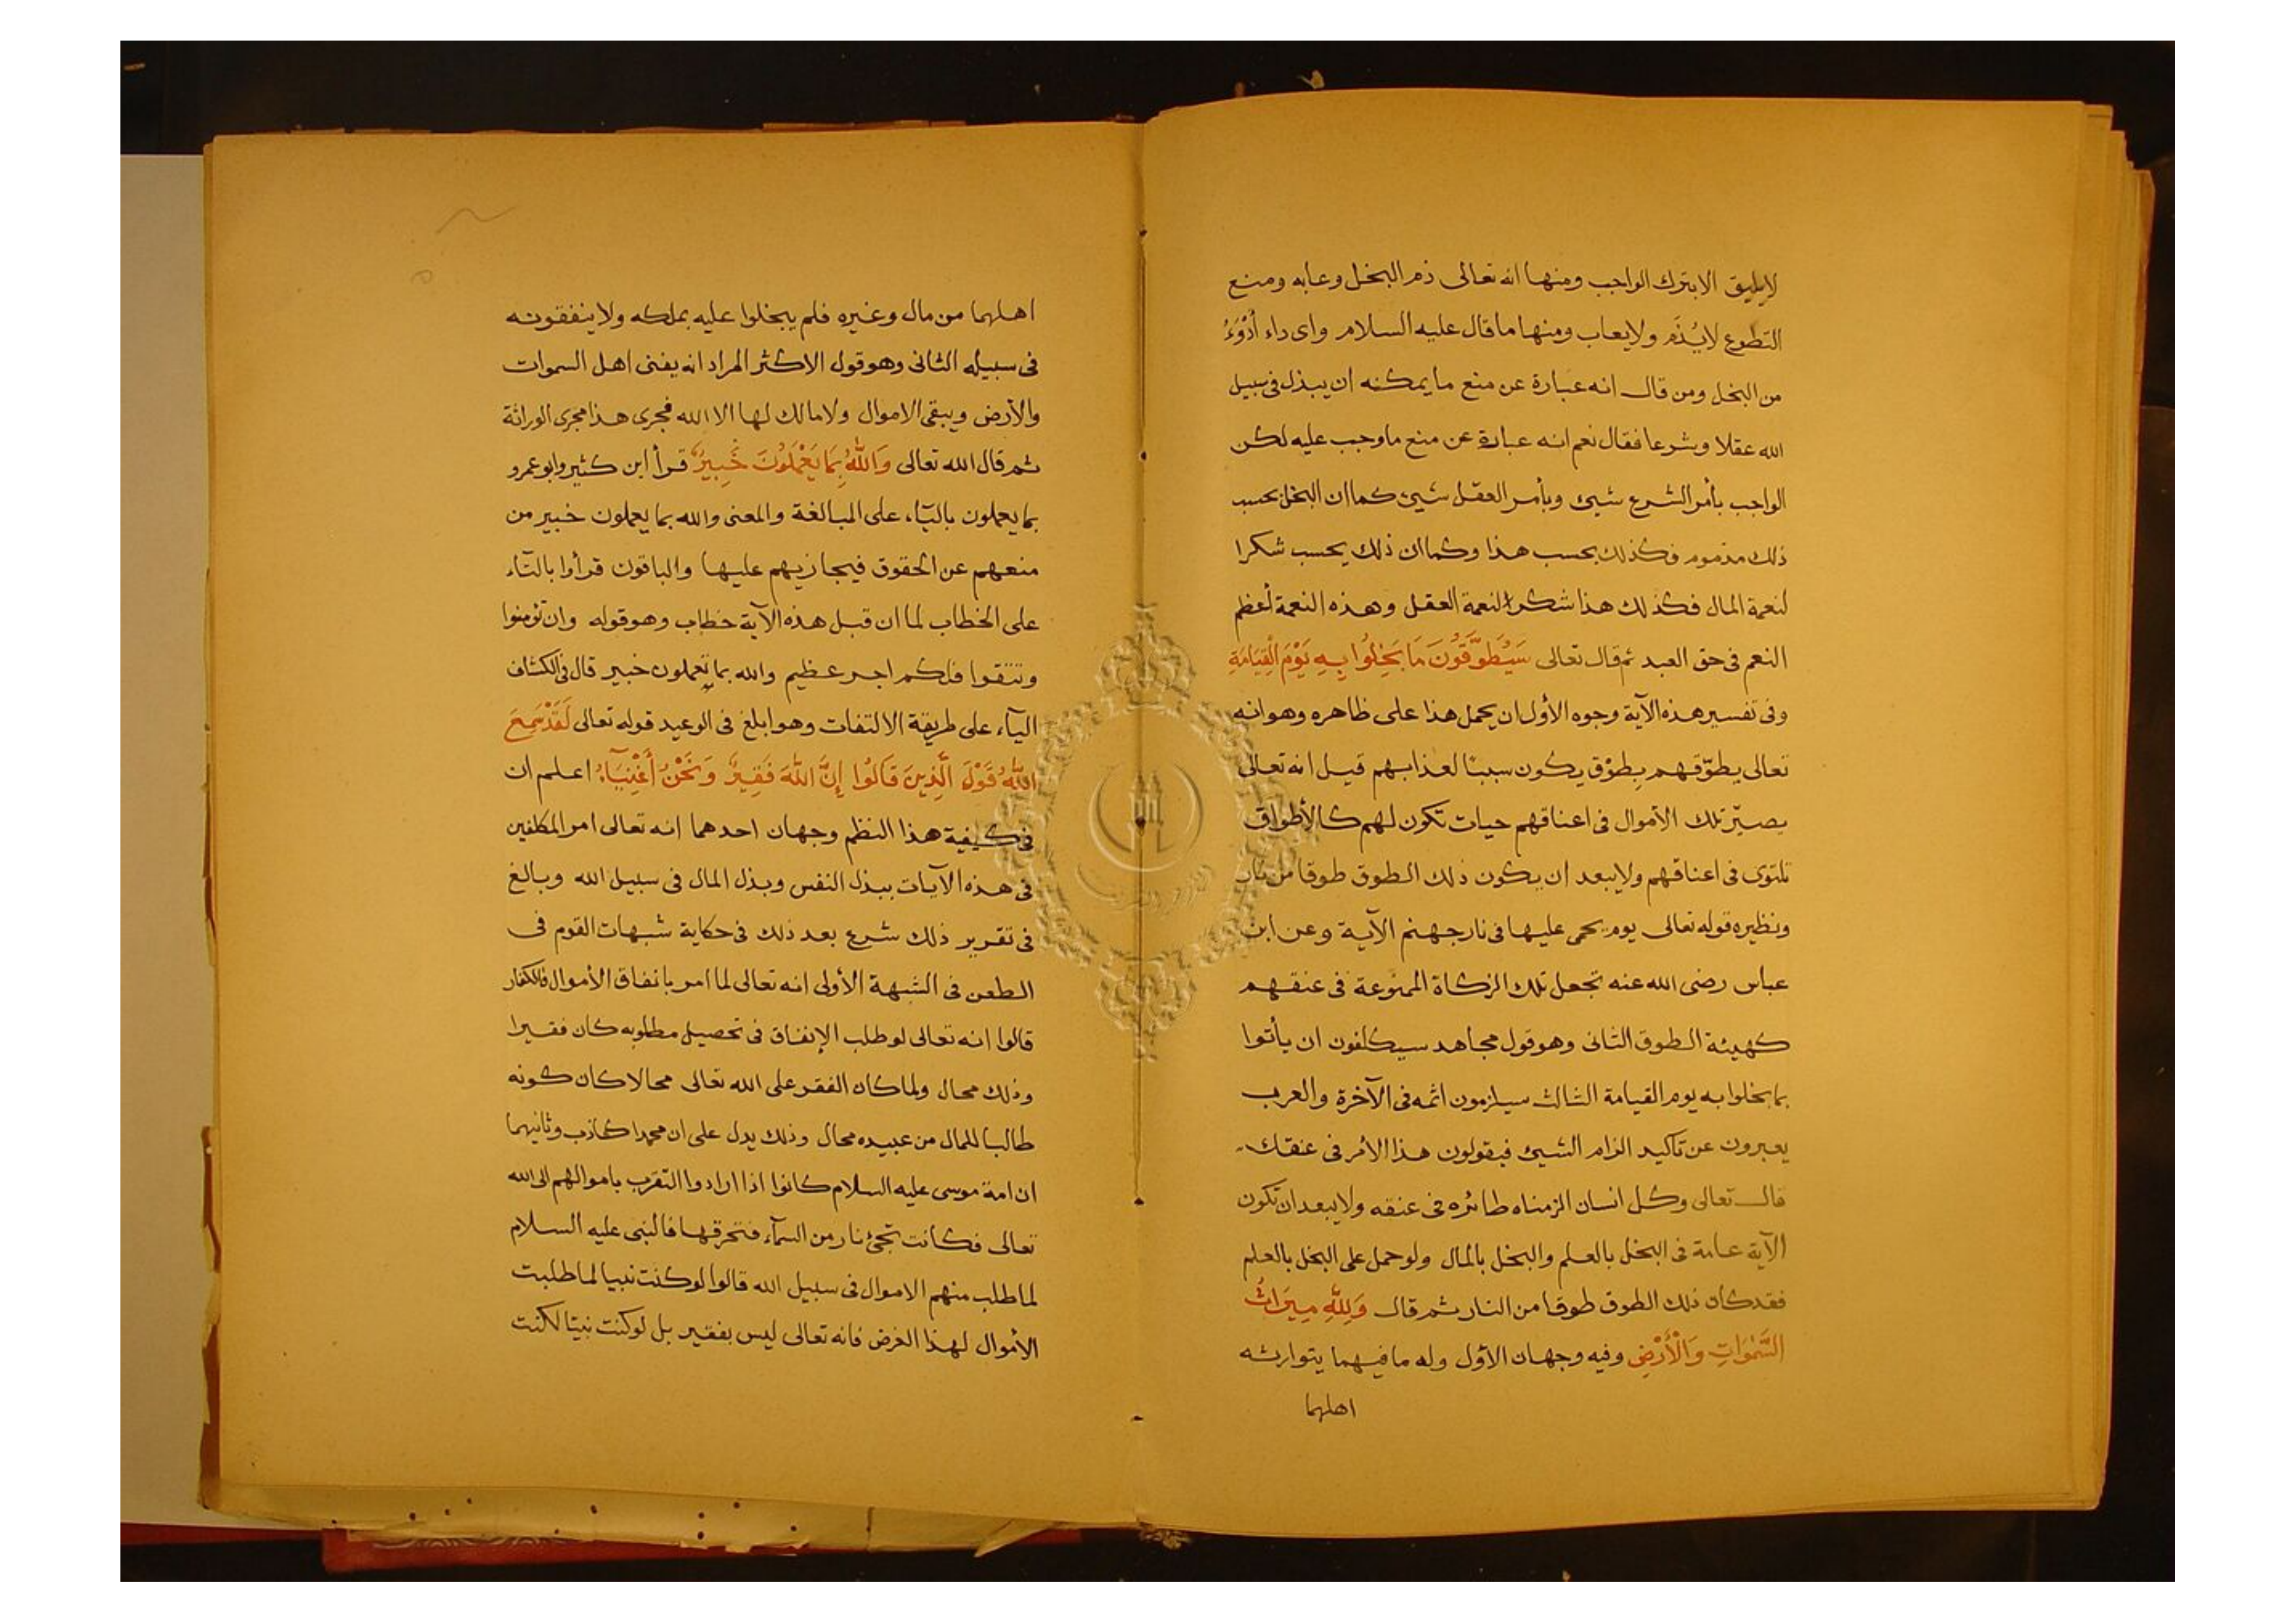 لايليق الابترك الواجب ومنها انه تعالى ذم البخل وعابه ومنع
التطوع لايُذَم ولايعاب ومنها ماقال عليه السلام واى داء أدْوَءُ
من البخل ومن قال انه عبارة عن منع مايمكنه ان يبذل فى سبيل
الله عقلا وشرعا فقال نعم انه عبارة عن منع ماوجب عليه لكن
الواجب بأمر الشرع شيئ وبأمر العقل شيئ كما ان البخل بحسب
ذلك مذموم فكذلك بحسب هذا وكما ان ذلك يحسب شكرا
لنعمة المال فكذلك هذا شكر لنعمة العقل وهذه النعمة أعظم
النعم فى حق العبد ثم قال تعالى سَيُطَوَّقُونَ مَا بَخِلُوا بِهِ يَوْمَ الْقِيَامَةِ
وفى تفسير هذه الآية وجوه الأول ان يحمل هذا على ظاهره وهو انه
تعالى يطوّقهم بطوْق يكون سببًا لعذابهم قيل انه تعالى
يصيّر تلك الأموال فى اعناقهم حيات تكون لهم كالأطواق
تلتوى فى اعناقهم ولايبعد ان يكون ذلك الطوق طوقا من نار
ونظيره قوله تعالى يوم يحمى عليها فى نار جهنم الآية وعن ابن
عباس رضى الله عنه تجعل تلك الزكاة الممنوعة فى عنقهم
كهيئة الطوق الثانى وهو قول مجاهد سيكلفون ان يأتوا
بما بخلوا به يوم القيامة الثالث سيلزمون اثمه فى الآخرة والعرب
يعبرون عن تاكيد الزام الشيئ فيقولون هذا الأمر فى عنقك
قال تعالى وكل انسان الزمناه طائره فى عنقه ولايبعد ان تكون
الآية عامة فى البخل بالعلم والبخل بالمال ولو حمل على البخل بالعلم
فقد كان ذلك الطوق طوقا من النار ثم قال وَلِلّهِ مِيرَاثُ
السَّمٰوَاتِ وَالْأَرْضِ وفيه وجهان الأول وله ما فيهما يتوارثه
اهلهما
اهلهما من مال وغيره فلم يبخلوا عليه بملكه ولاينفقونه
فى سبيله الثانى وهو قول الاكثر المراد انه يفنى اهل السموات
والأرض ويبقى الاموال ولامالك لها الا الله فجرى هذا مجرى الوراثة
ثم قال الله تعالى وَاللّهُ بِمَا يَعْمَلُونَ خَبِيرٌ قرأ ابن كثير وابو عمرو
بما يعملون باليآء على المبالغة والمعنى والله بما يعملون خبير من
منعهم عن الحقوق فيجازيهم عليها والباقون قرأوا بالتآء
على الخطاب لما ان قبل هذه الآية خطاب وهو قوله وان تؤمنوا
وتتقوا فلكم اجر عظيم والله بما تعملون خبير قال فى الكشاف
اليآء على طريقة الالتفات وهو ابلغ فى الوعيد قوله تعالى لَقَدْ سَمِعَ
اللّهُ قَوْلَ الَّذِينَ قَالُوا إِنَّ اللّهَ فَقِيرٌ وَنَحْنُ أَغْنِيَآءُ اعلم ان
فى كيفية هذا النظم وجهان احدهما انه تعالى امر المكلفين
فى هذه الآيات ببذل النفس وبذل المال فى سبيل الله وبالغ
فى تقرير ذلك شرع بعد ذلك فى حكاية شبهات القوم فى
الطعن فى الشبهة الأولى انه تعالى لما امر بانفاق الأموال فالكفار
قالوا انه تعالى لو طلب الإنفاق فى تحصيل مطلوبه كان فقيرا
وذلك محال ولما كان الفقر على الله تعالى محالا كان كونه
طالبا للمال من عبيده محال وذلك يدل على ان محمدا كاذب وثانيهما
ان امة موسى عليه السلام كانوا اذا ارادوا التقرب باموالهم الى الله
تعالى فكانت تجئ نار من السمآء فتحرقها فالنبى عليه السلام
لما طلب منهم الاموال فى سبيل الله قالوا لو كنت نبيا لما طلبت
الأموال لهذا الغرض فانه تعالى ليس بفقير بل لو كنت نبيّا لكنت